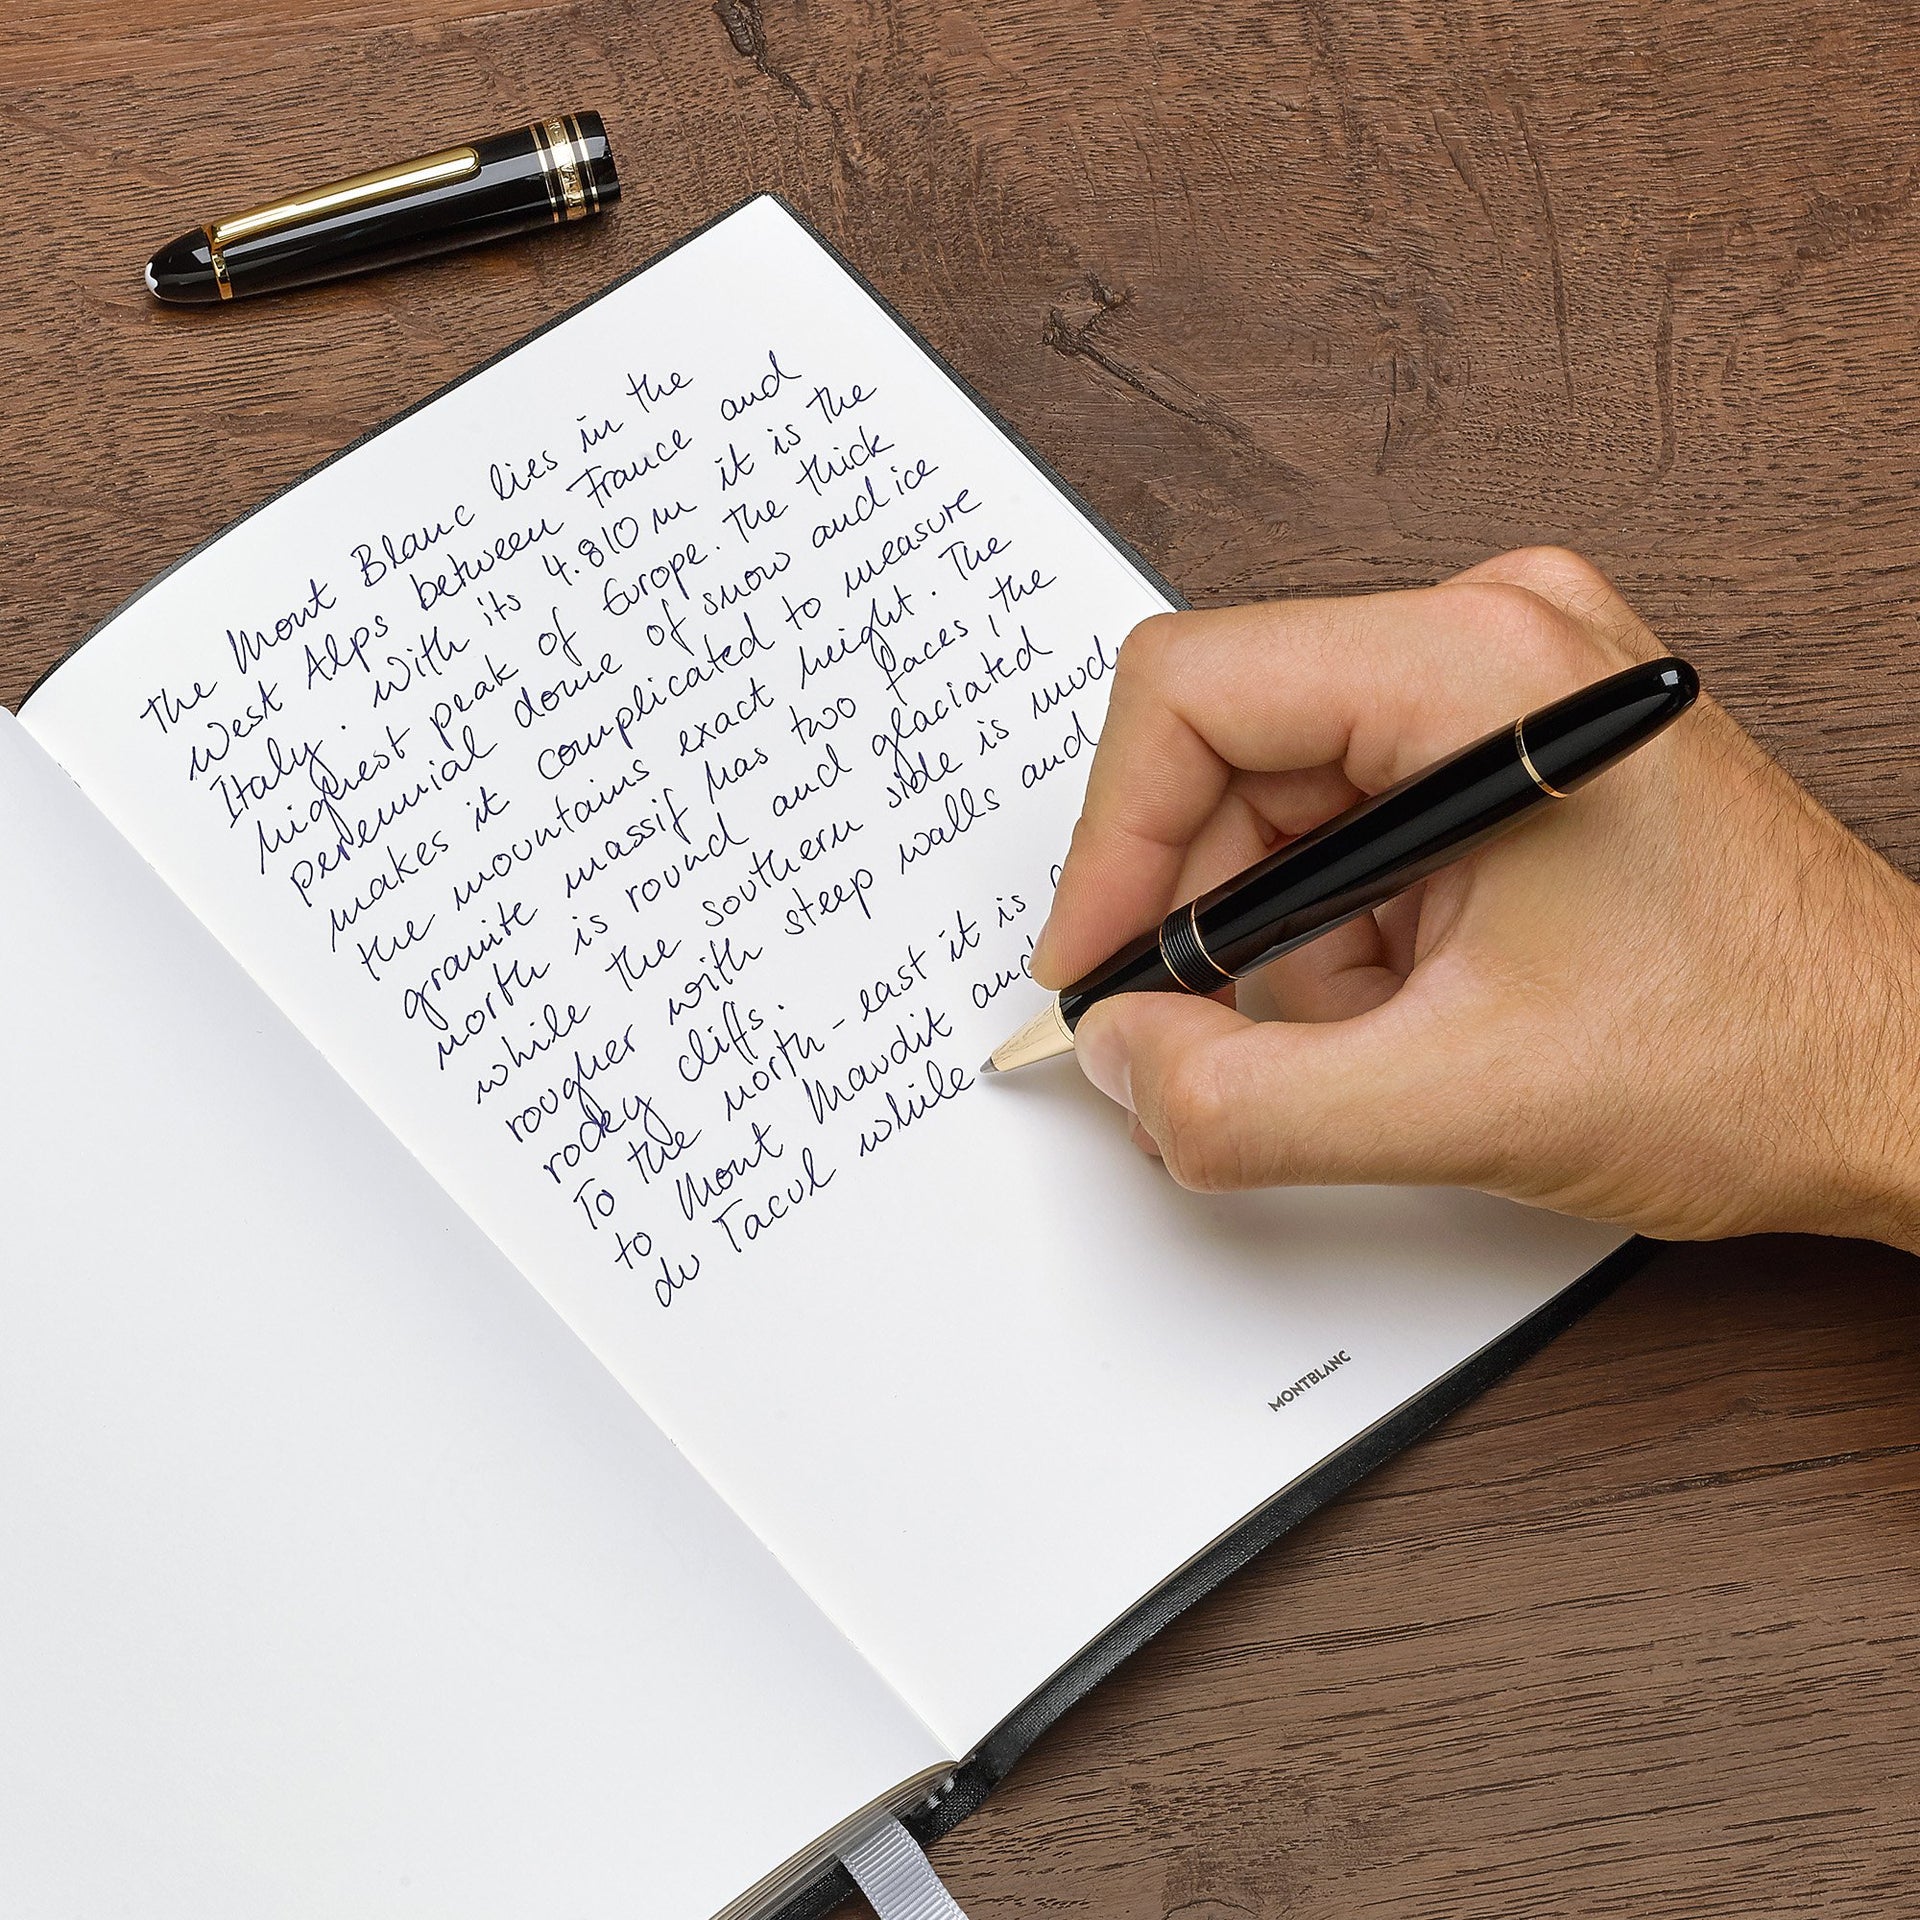 The Mont Blanc lies in the
West Alps between France and
Italy. With its 4.810 m it is the
highest peak of Europe. The thick
perennial dome of snow and ice
makes it complicated to measure
the mountains exact height. The
granite massif has two faces, the
north is round and glaciated
while the southern side is
rougher with steep walls and
rocky cliffs.
To the north-east it is
to Mont Maudit and
du Tacul while
MONTBLANC